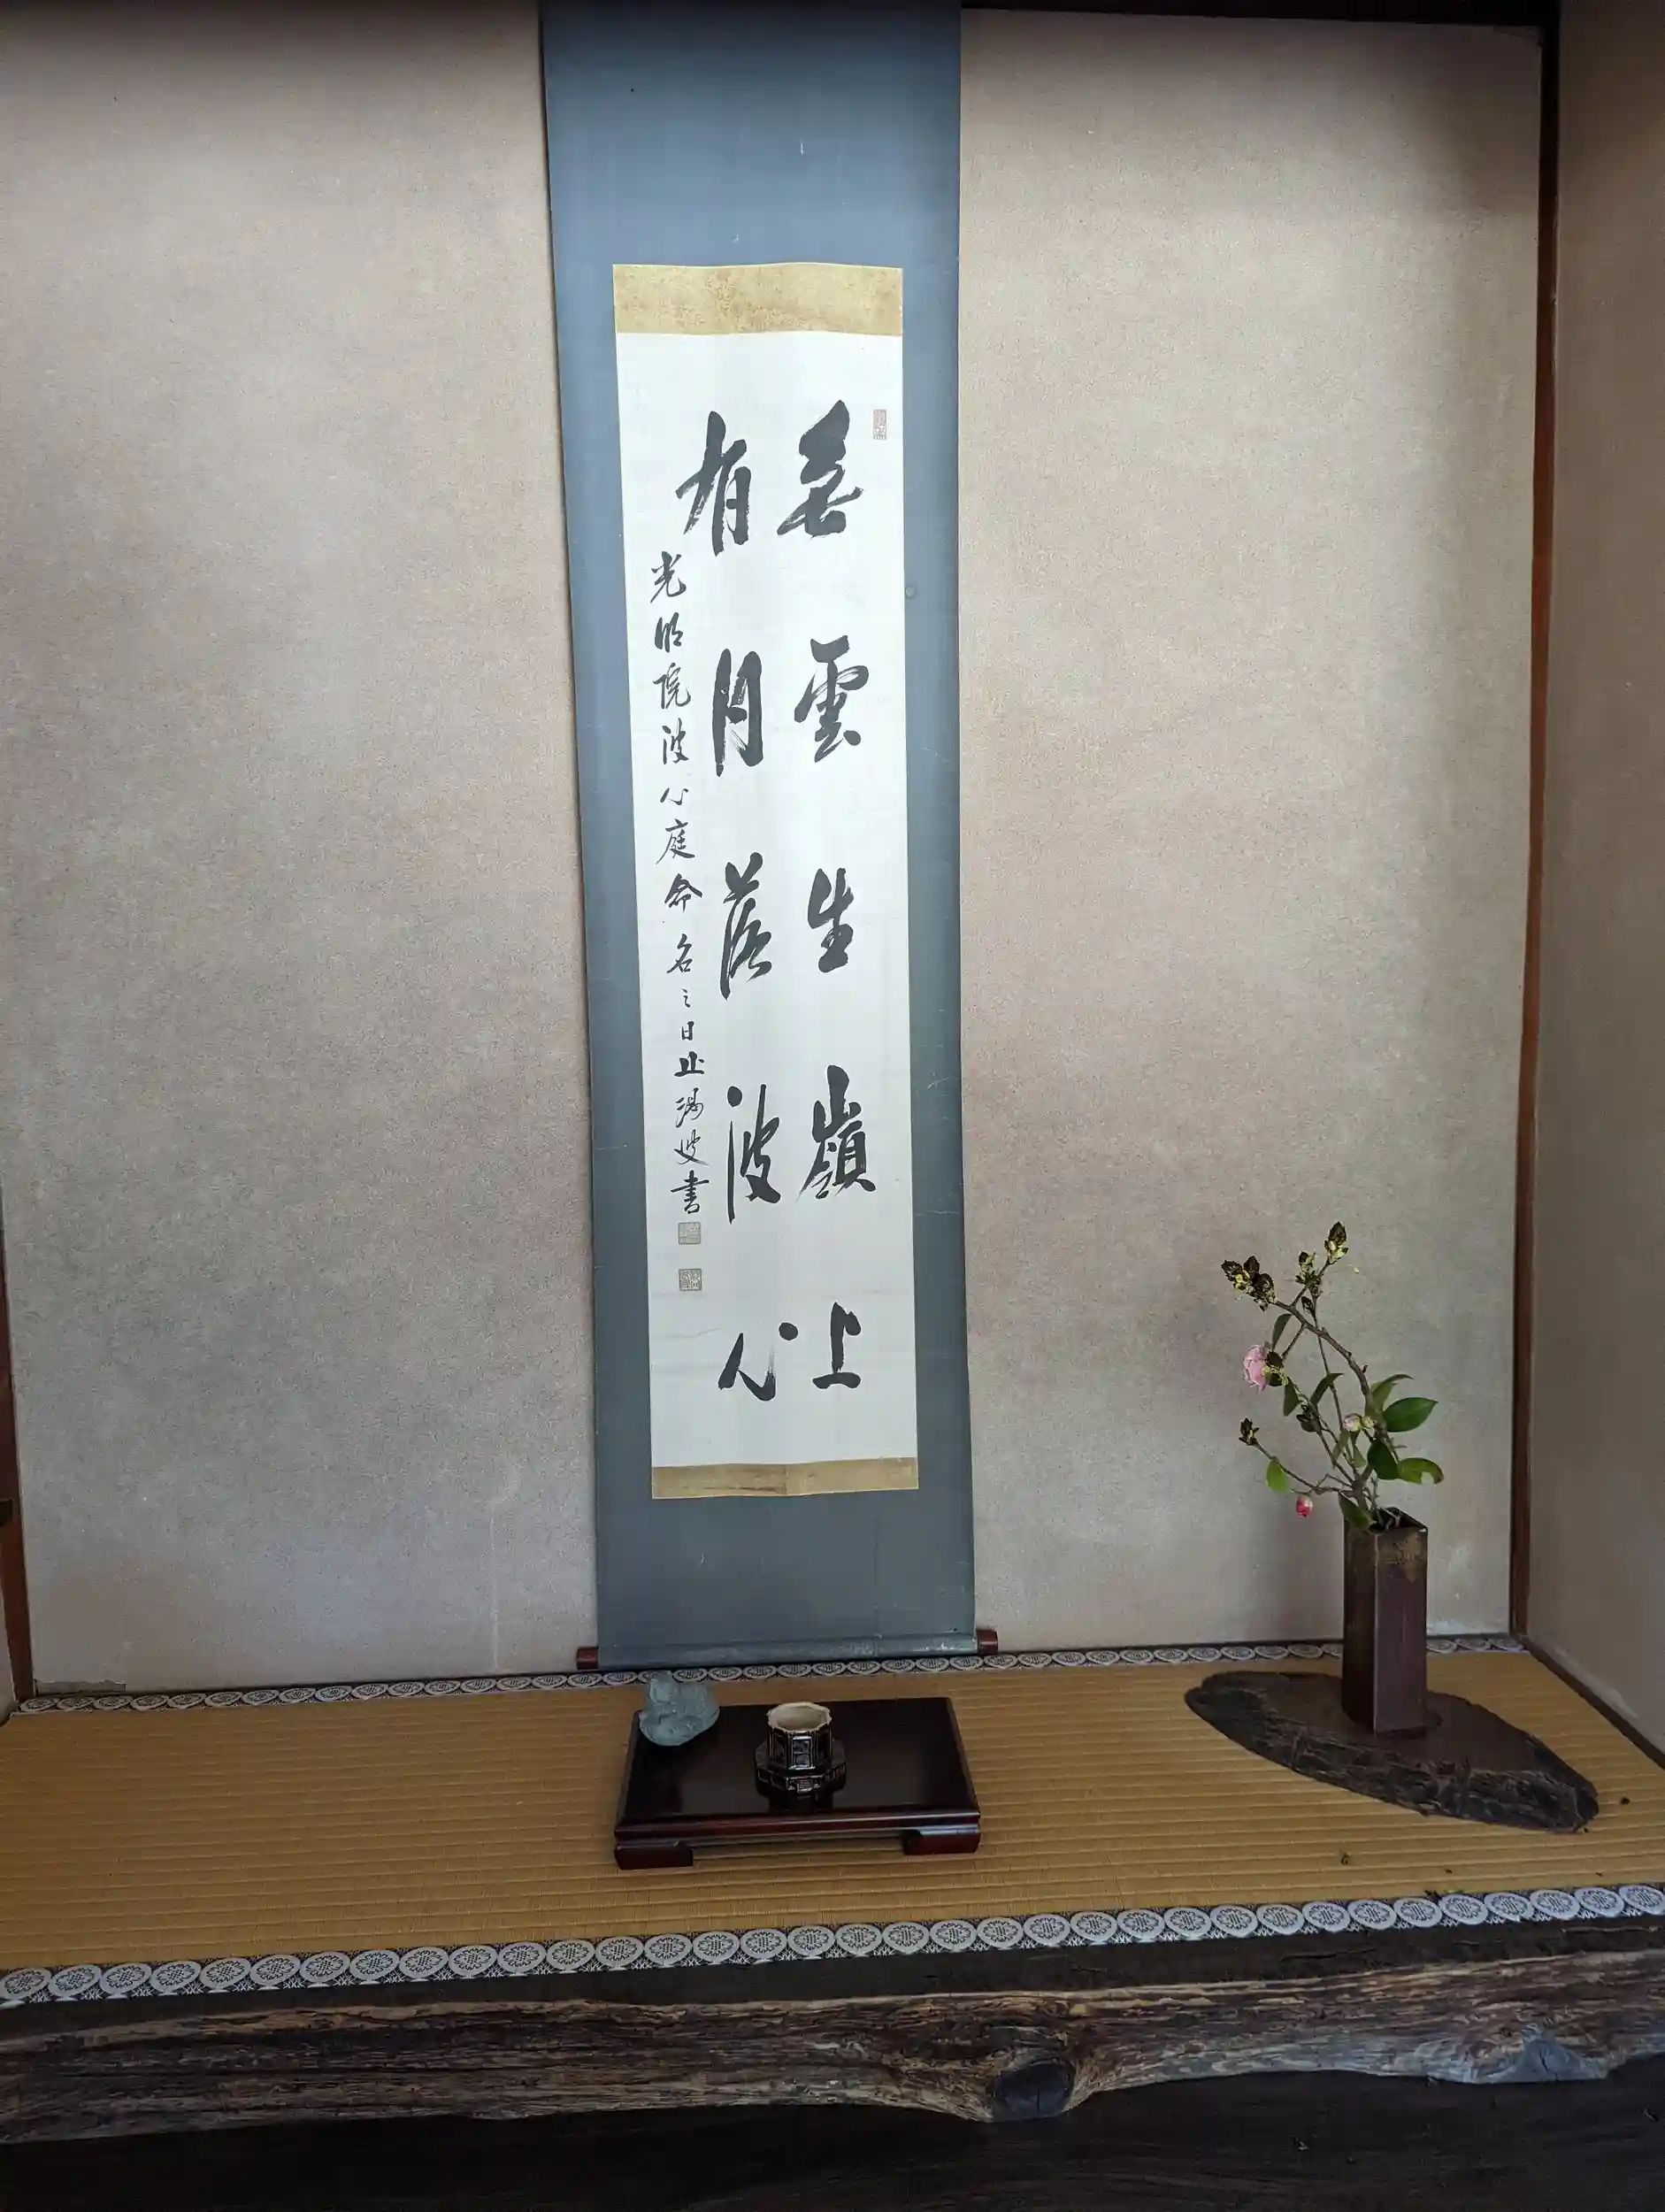 無雲生嶺上
有月落波心
光明院波心庭命名之日止渴叟書